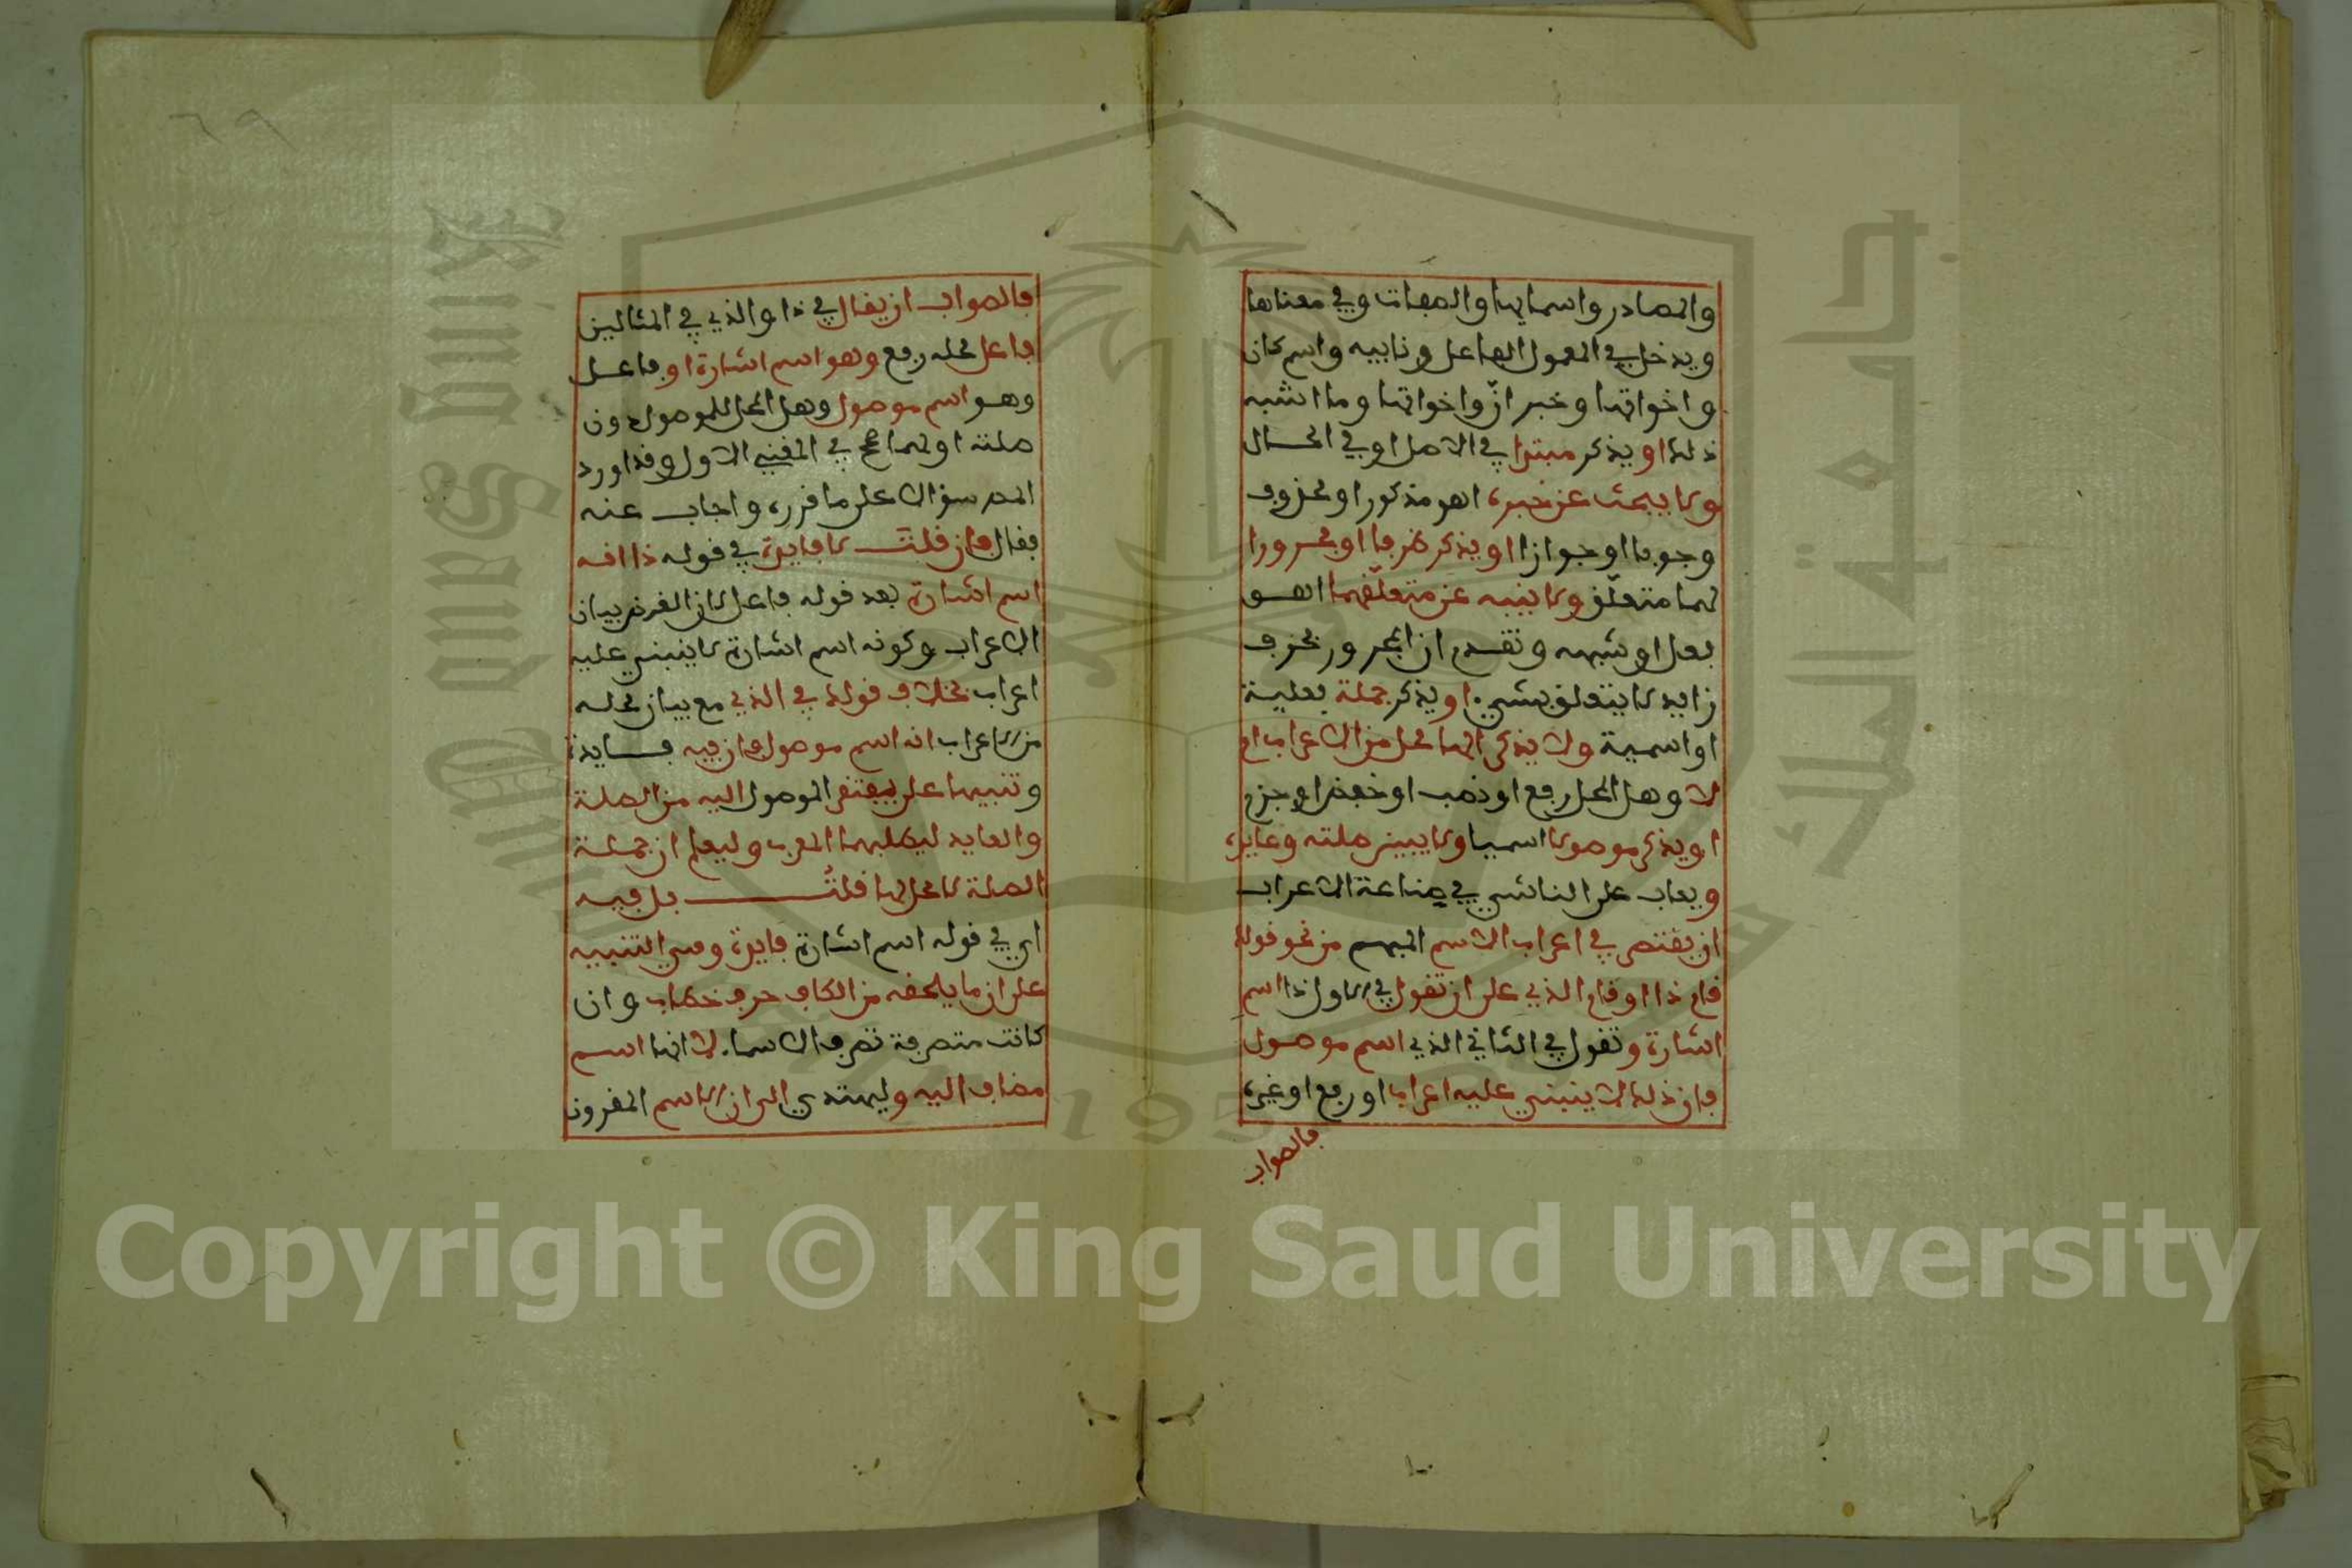 والمصادر واسمايها والصفات وفي معناها
ويدخل في المعمول الفاعل ونايبه واسم كان
واخواتها وخبر انّ واخواتها وما اشبه
ذلك او يذكر مبتدا في الاصل او في الحال
ولا يبحث عن خبره اهو مذكور او محذوف
وجوبا او جوازا او يذكر ظرفا او مجرورا
لهما متعلّق ولا ينبه عن متعلّقهما اهو
فعل او شبهه وتقدم ان المجرور بحرف
زايد لا يتعلق بشيء او يذكر جملة فعلية
او اسمية ولا يذكر الها محل من الاعراب ام
لا وهل المحل رفع او نصب او خفض او جزم
او يذكر موصولا اسميا ولا يبين صلته وعايده
ويعاب على الناشي في صناعة الاعراب
ان يقتصر في اعراب الاسم المبهم من نحو قولك
قام ذا او قام الذي على ان تقول في الاول ذا اسم
اشارة وتقول في الثاني الذي اسم موصول
فان ذلك لا ينبني عليه اعراب او رفع او غيره
فالصواب
٦٩
فالصواب ان يقال في ذا والذي في المثالين
فاعل محله رفع وهو اسم اشارة او فاعل
وهو اسم موصول وهل المحل للموصول دون
صلته او لهما صحح في المغني الاول وقد اورد
المص سؤالا على ما قرره واجاب عنه
فقال فان قلت لا فايدة في قوله ذا انه
اسم اشارة بعد قوله فاعل لان الغرض بيان
الاعراب وكونه اسم اشارة لا ينبني عليه
اعراب بخلاف قولك في الذي مع بيان محله
من الاعراب انه اسم موصول فان فيه فايدة
وتنبيها على يفتقر الموصول اليه من الصلة
والعايد ليطلبهما المعرب وليعلم ان جملة
الصلة لا محل لها قلتُ بل فيه
اي في قوله اسم اشارة فايدة وهي التنبيه
على ان ما يلحقه من الكاف حرف خطاب وان
كانت متصرفة تصرف الاسماء لا انها اسم
مضاف اليه وليهتدي الى ان الاسم المقرون
Copyright © King Saud University